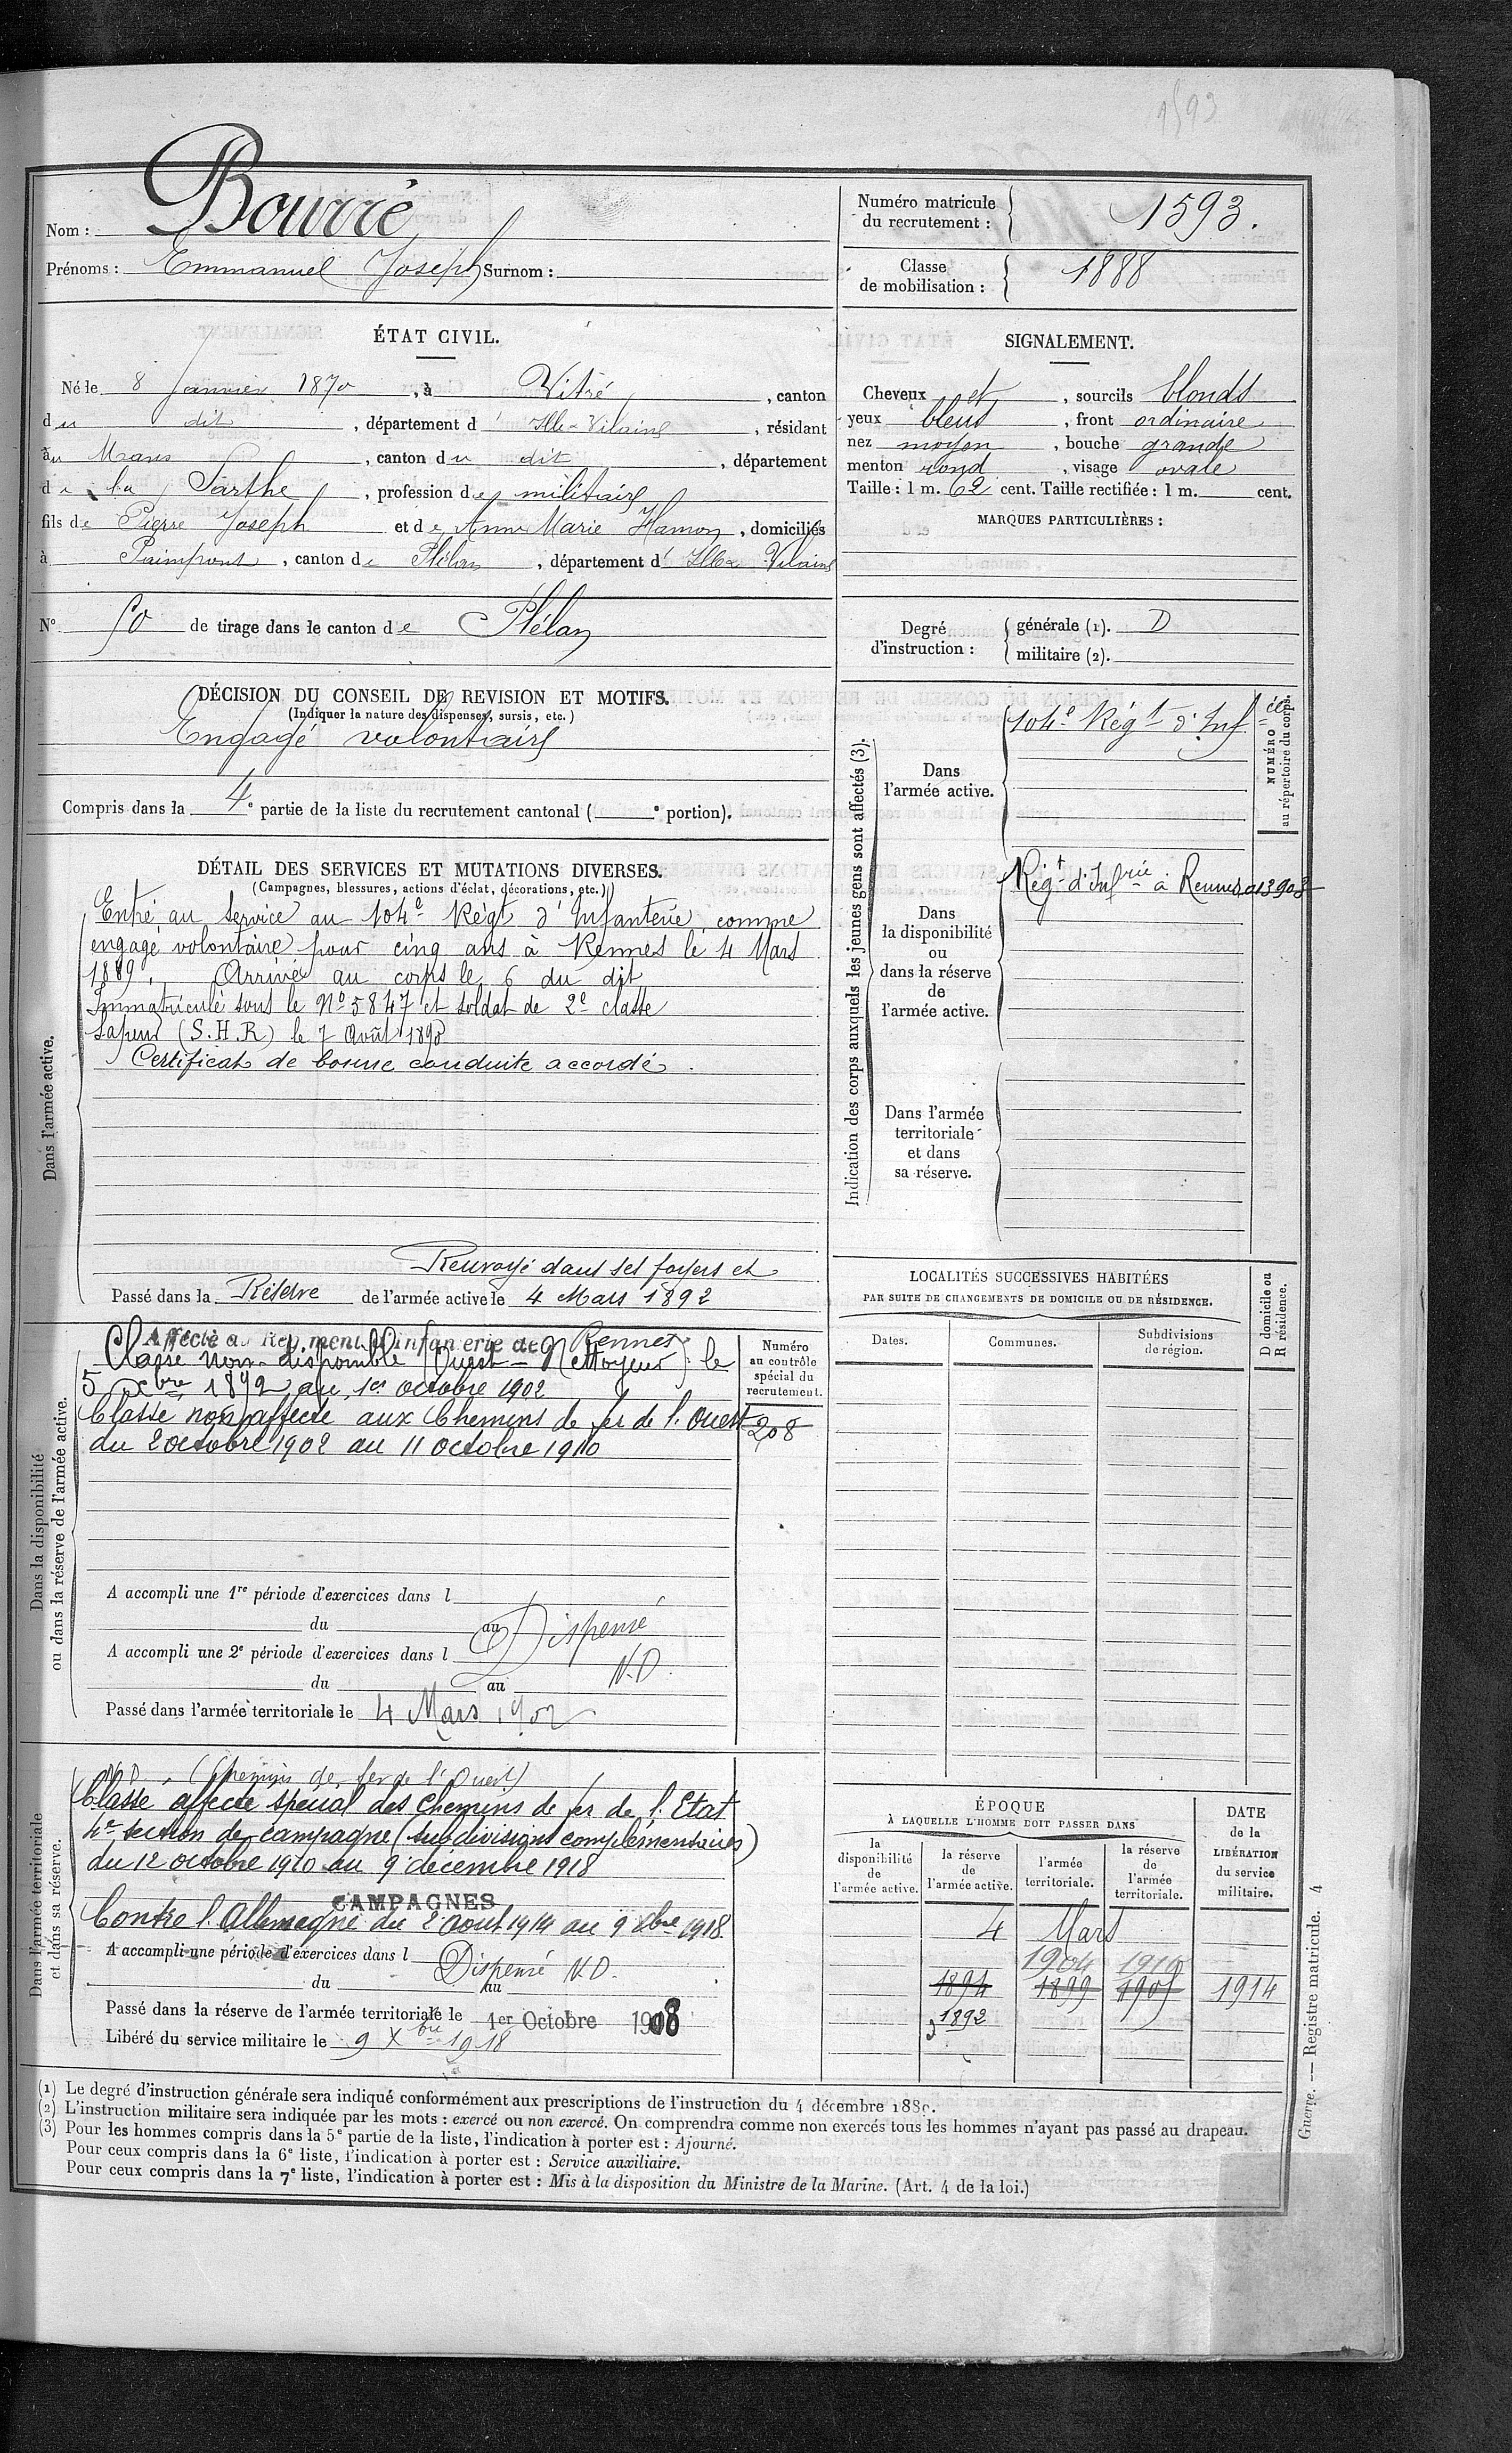 1593
Nom : Bourré
Prénoms : Emmanuel Joseph Surnom :
Numéro matricule
du recrutement :
1593.
Classe
de mobilisation :
1888
ÉTAT CIVIL.
Né le 8 Janvier 1870, à Vitré, canton
du dit, département d'Ille-Vilaine, résidant
au Mans, canton du dit, département
de la Sarthe, profession de militaire
fils de Pierre Joseph et de Anne Marie Hamon, domiciliés
à Paimpont, canton de Plélan, département d'Ille & Vilaine
N° 50 de tirage dans le canton de Plélan
SIGNALEMENT.
Cheveux et, sourcils blonds
yeux bleus, front ordinaire
nez moyen, bouche grande
menton rond, visage ovale
Taille : 1 m. 62 cent. Taille rectifiée : 1 m. cent.
MARQUES PARTICULIÈRES :
Degré
d'instruction :
générale (1). D
militaire (2).
DÉCISION DU CONSEIL DE REVISION ET MOTIFS.
(Indiquer la nature des dispenses, sursis, etc.)
Engagé volontaire
Compris dans la 4e partie de la liste du recrutement cantonal ( e portion).
DÉTAIL DES SERVICES ET MUTATIONS DIVERSES.
(Campagnes, blessures, actions d'éclat, décorations, etc.)
Dans l'armée active.
Entré au service au 104e Régt d'Infanterie comme
engagé volontaire pour cinq ans à Rennes le 4 Mars
1889, Arrivé au corps le 6 du dit
Immatriculé sous le No 5847 et soldat de 2e classe
Sapeur (S.H.R) le 7 Août 1890
Certificat de bonne conduite accordé.
Renvoyé dans ses foyers et
Passé dans la Réserve de l'armée active le 4 Mars 1892
Indication des corps auxquels les jeunes gens sont affectés (3).
Dans
l'armée active.
104e Régt d'Inf.
NUMÉRO
au répertoire du corps.
Dans
la disponibilité
ou
dans la réserve
de
l'armée active.
Régt d'Infrie à Rennes
Dans l'armée
territoriale
et dans
sa réserve.
LOCALITÉS SUCCESSIVES HABITÉES
PAR SUITE DE CHANGEMENTS DE DOMICILE OU DE RÉSIDENCE.
D domicile ou
R résidence.
Dates.
Communes.
Subdivisions
de région.
Dans la disponibilité
ou dans la réserve de l'armée active.
Affecté au Régiment d'infanterie de Rennes
Classé non-disponible (Ouest - Nettoyeur) le
5 xbre 1892 au 1er octobre 1902
Classé non affecté aux Chemins de fer de l'Ouest
du 2 octobre 1902 au 11 octobre 1910
Numéro
au contrôle
spécial du
recrutement.
208
A accompli une 1re période d'exercices dans l
du au Dispensé
A accompli une 2e période d'exercices dans l
N.D.
du au
Passé dans l'armée territoriale le 4 Mars 1902
Dans l'armée territoriale
et dans sa réserve.
N D. (Chemins de fer de l'Ouest)
Classé affecté spécial des Chemins de fer de l'Etat
4e section de campagne (subdivisions complémentaires)
du 12 octobre 1910 au 9 décembre 1918
CAMPAGNES
Contre l'Allemagne du 2 août 1914 au 9 xbre 1918.
A accompli une période d'exercices dans l
Dispensé N.D.
du au
Passé dans la réserve de l'armée territoriale le 1er Octobre 1908
Libéré du service militaire le 9 Xbre 1918
ÉPOQUE
À LAQUELLE L'HOMME DOIT PASSER DANS
la
disponibilité
de
l'armée active.
la réserve
de
l'armée active.
l'armée
territoriale.
la réserve
de
l'armée
territoriale.
DATE
de la
LIBÉRATION
du service
militaire.
4 Mars
1904 1910
1894 1899 1905 1914
1892
Guerre. — Registre matricule. 4
(1) Le degré d'instruction générale sera indiqué conformément aux prescriptions de l'instruction du 4 décembre 1889.
(2) L'instruction militaire sera indiquée par les mots : exercé ou non exercé. On comprendra comme non exercés tous les hommes n'ayant pas passé au drapeau.
(3) Pour les hommes compris dans la 5e partie de la liste, l'indication à porter est : Ajourné.
Pour ceux compris dans la 6e liste, l'indication à porter est : Service auxiliaire.
Pour ceux compris dans la 7e liste, l'indication à porter est : Mis à la disposition du Ministre de la Marine. (Art. 4 de la loi.)